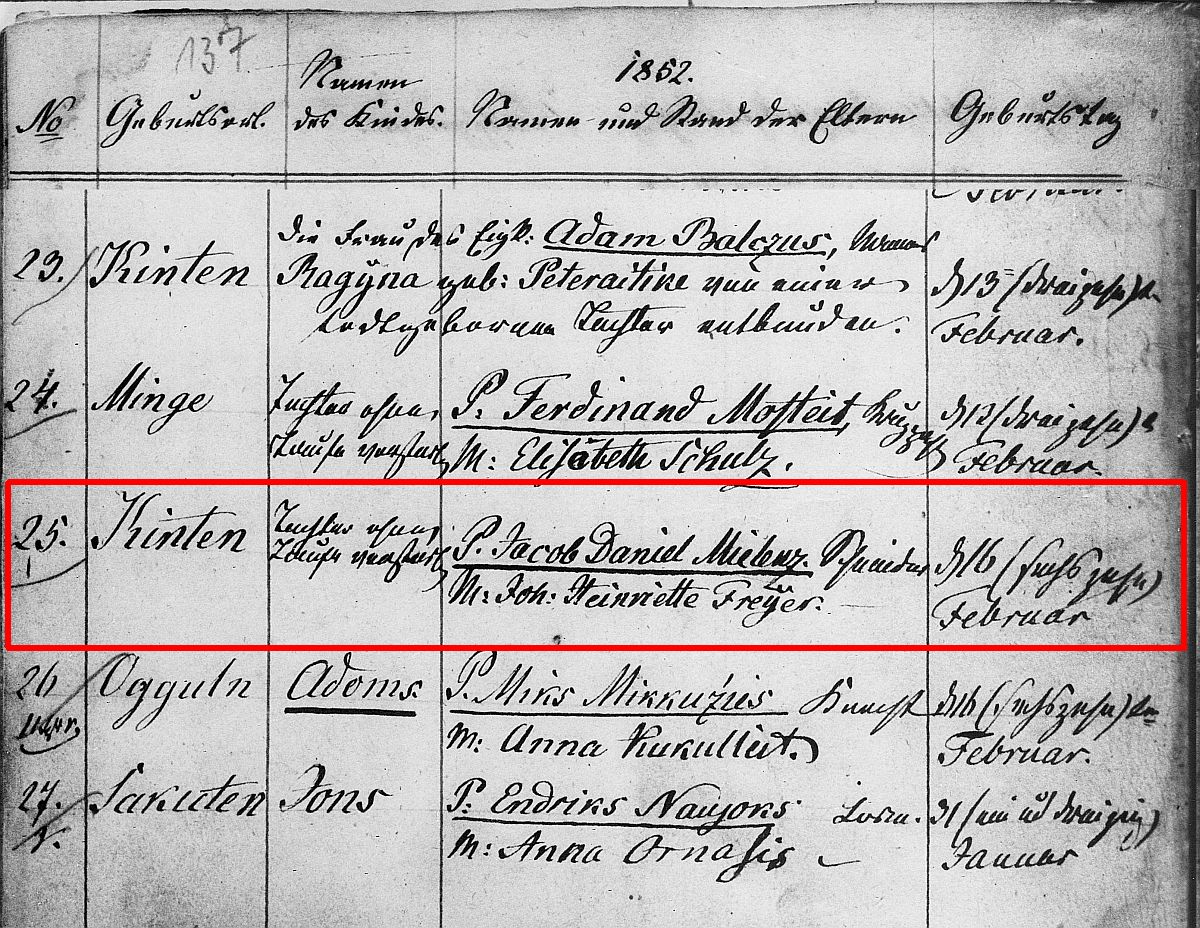 137
1852.
No Geburtsort. Namen des Kindes. Namen und Stand der Eltern Geburtstag
Februar.
23. Kinten die Frau des Eigk: Adam Balczus, Namens
Ragÿna geb: Peteraitike von einer d 13 (dreizehn)t.
todtgebornen Tochter entbunden. Februar.
24. Minge Tochter ohne P. Ferdinand Mosteit, d 13 (dreizehn)
Taufe verstarb M: Elisabeth Schulz. Februar.
25. Kinten Tochter ohne
Taufe verstarb P. Jacob Daniel Mielenz. Schneider d 16 (sechszehn)
M: Joh: Heinriette Freÿer. Februar
26 Oggeln Adoms. P. Miks Mikkužies Knecht d 16 (sechszehn)te
M: Anna Kukulleit. Februar.
27. Sakuten Jons P. Endriks Naujoks Losm. 31 (ein u dreizig)
M: Anna Ornasis Januar